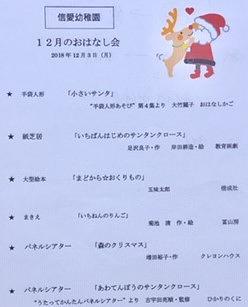 信愛幼稚園
１２月のおはなし会
2018年12月3日（月）
★ 手袋人形 「小さいサンタ」
"手袋人形あそび" 第4集より 大竹麗子 おはなしかご
★ 紙芝居 「いちばんはじめのサンタンクロース」
足沢良子・作 岸田耕造・絵 教育画劇
★ 大型絵本 「まどから☆おくりもの」
五味太郎 偕成社
★ まきえ 「いちねんのりんご」
菊池清 作・絵 冨山房
★ パネルシアター 「森のクリスマス」
増田裕子・作 クレヨンハウス
★ パネルシアター 「あわてんぼうのサンタクロース」
"うたってかんたんパネルシアター" より 古宇田亮順・監修 ひかりのくに